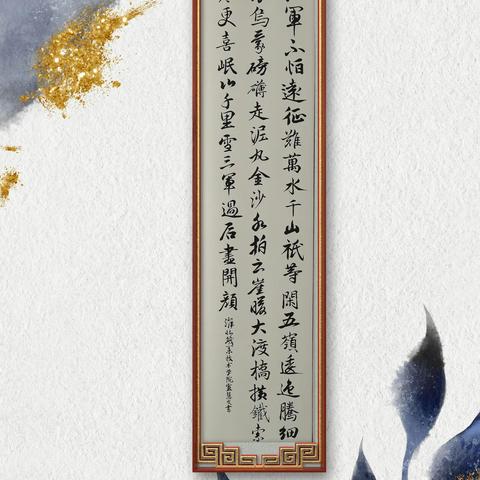 軍不怕遠征難萬水千山祇等閑五嶺逶迤騰細
烏蒙磅礴走泥丸金沙水拍云崖暖大渡橋横鐵索
更喜岷山千里雪三軍過后盡開顏
技术学院
书